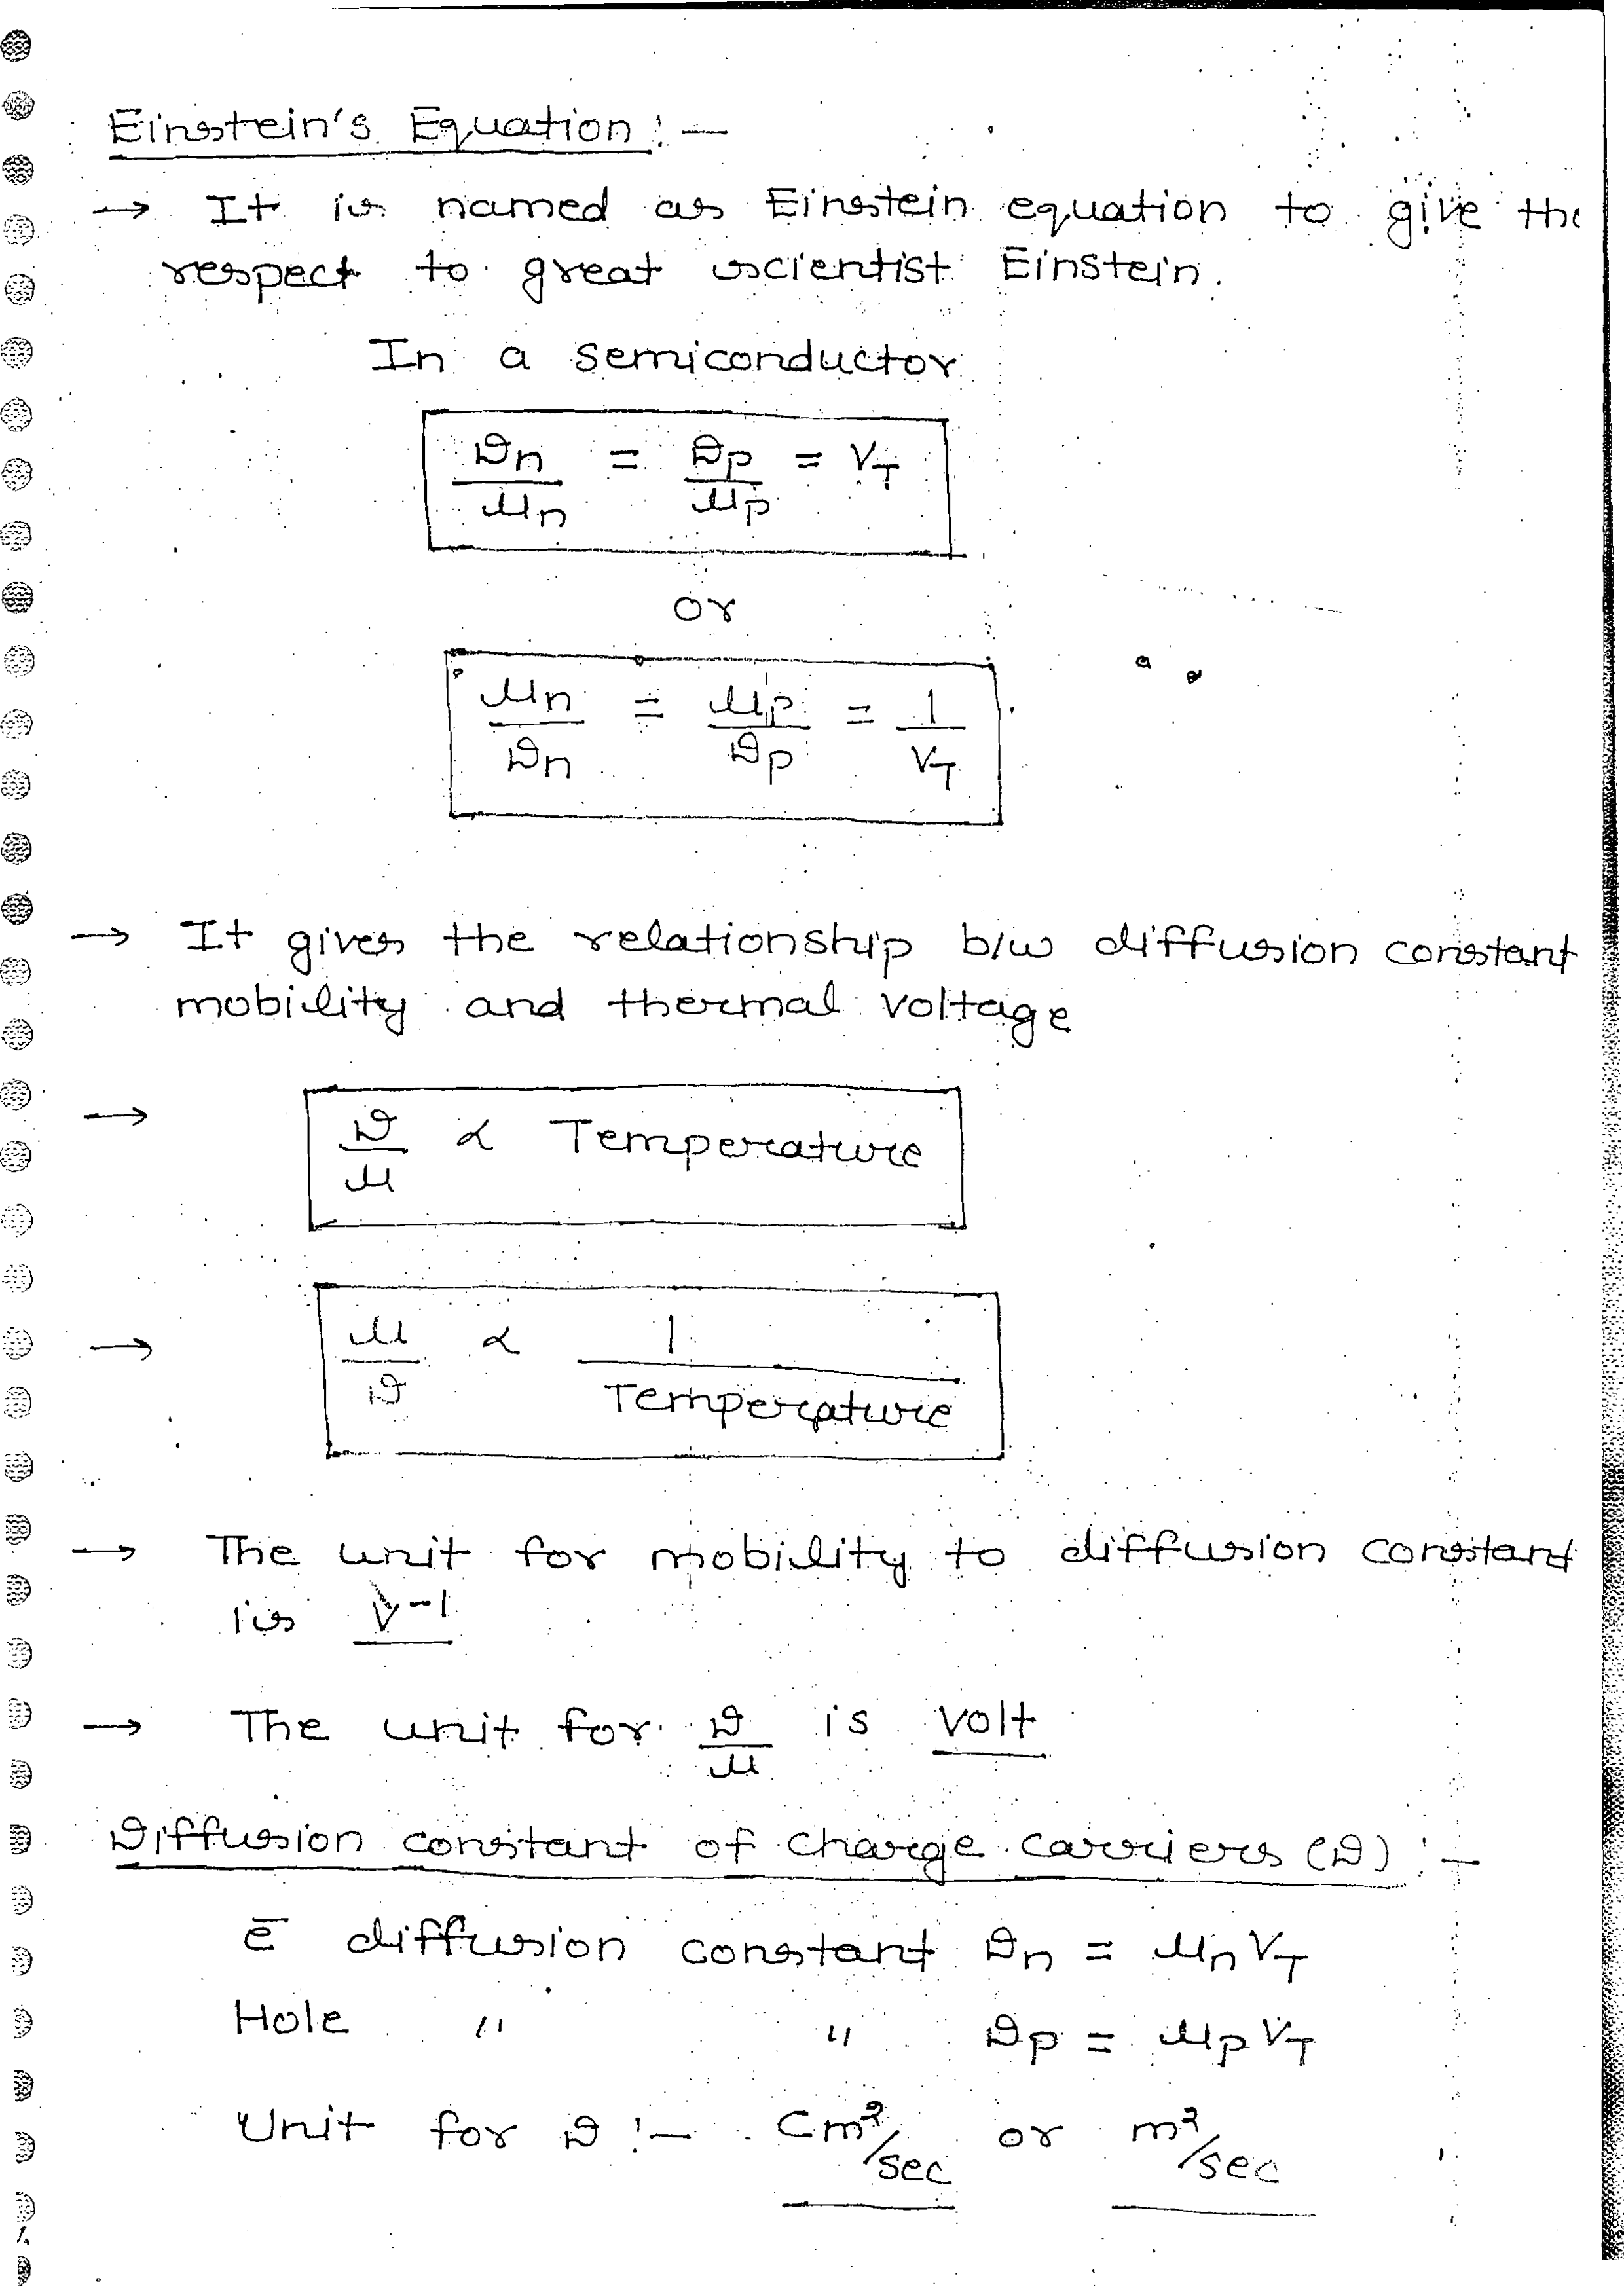 Einstein's Equation :-
→ It is named as Einstein equation to give the
respect to great scientist Einstein.
In a semiconductor
Dn/μn = Dp/μp = VT
or
μn/Dn = μp/Dp = 1/VT
→ It gives the relationship b/w diffusion constant
mobility and thermal voltage
→ D/μ ∝ Temperature
→ μ/D ∝ 1/Temperature
→ The unit for mobility to diffusion constant
is V⁻¹
→ The unit for D/μ is volt
Diffusion constant of charge carriers (D) :-
ē diffusion constant Dn = μn VT
Hole " " Dp = μp VT
Unit for D :- Cm²/sec or m²/sec